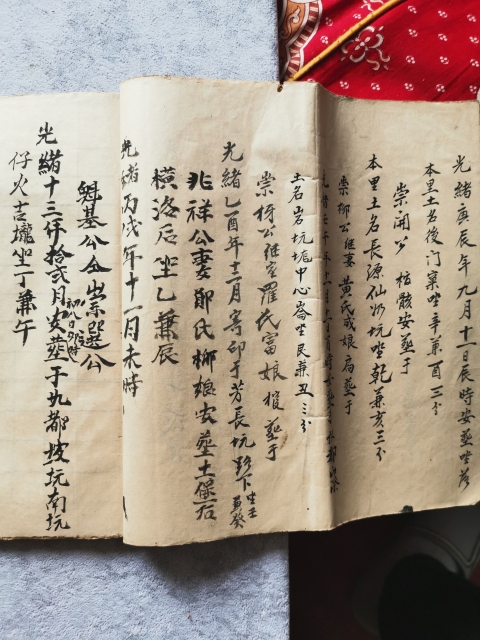 光緒庚辰年九月十一日辰時安塟坐落
本里土名後门窠坐辛兼酉三分
崇開公 枯骸安塟于
本里土名長源仙吩坑坐乾兼亥三分
崇柳公继妻 黄氏戒娘 扃塟于
土名岩坑垅中心崙坐艮兼丑三分
崇栟公继室羅氏富娘 塟于
光緒乙酉年十二月寄卯于芳長坑 路下坐壬兼癸
兆祥公妻鄭氏柳娘安塟土堡后
橫洛后坐乙兼辰
光緒丙戌年十一月未時
魁基公仝崇選公
光緒十三年拾弍月初八日卯時安塟于九都坡坑南坑
仔火吉壠坐丁兼午